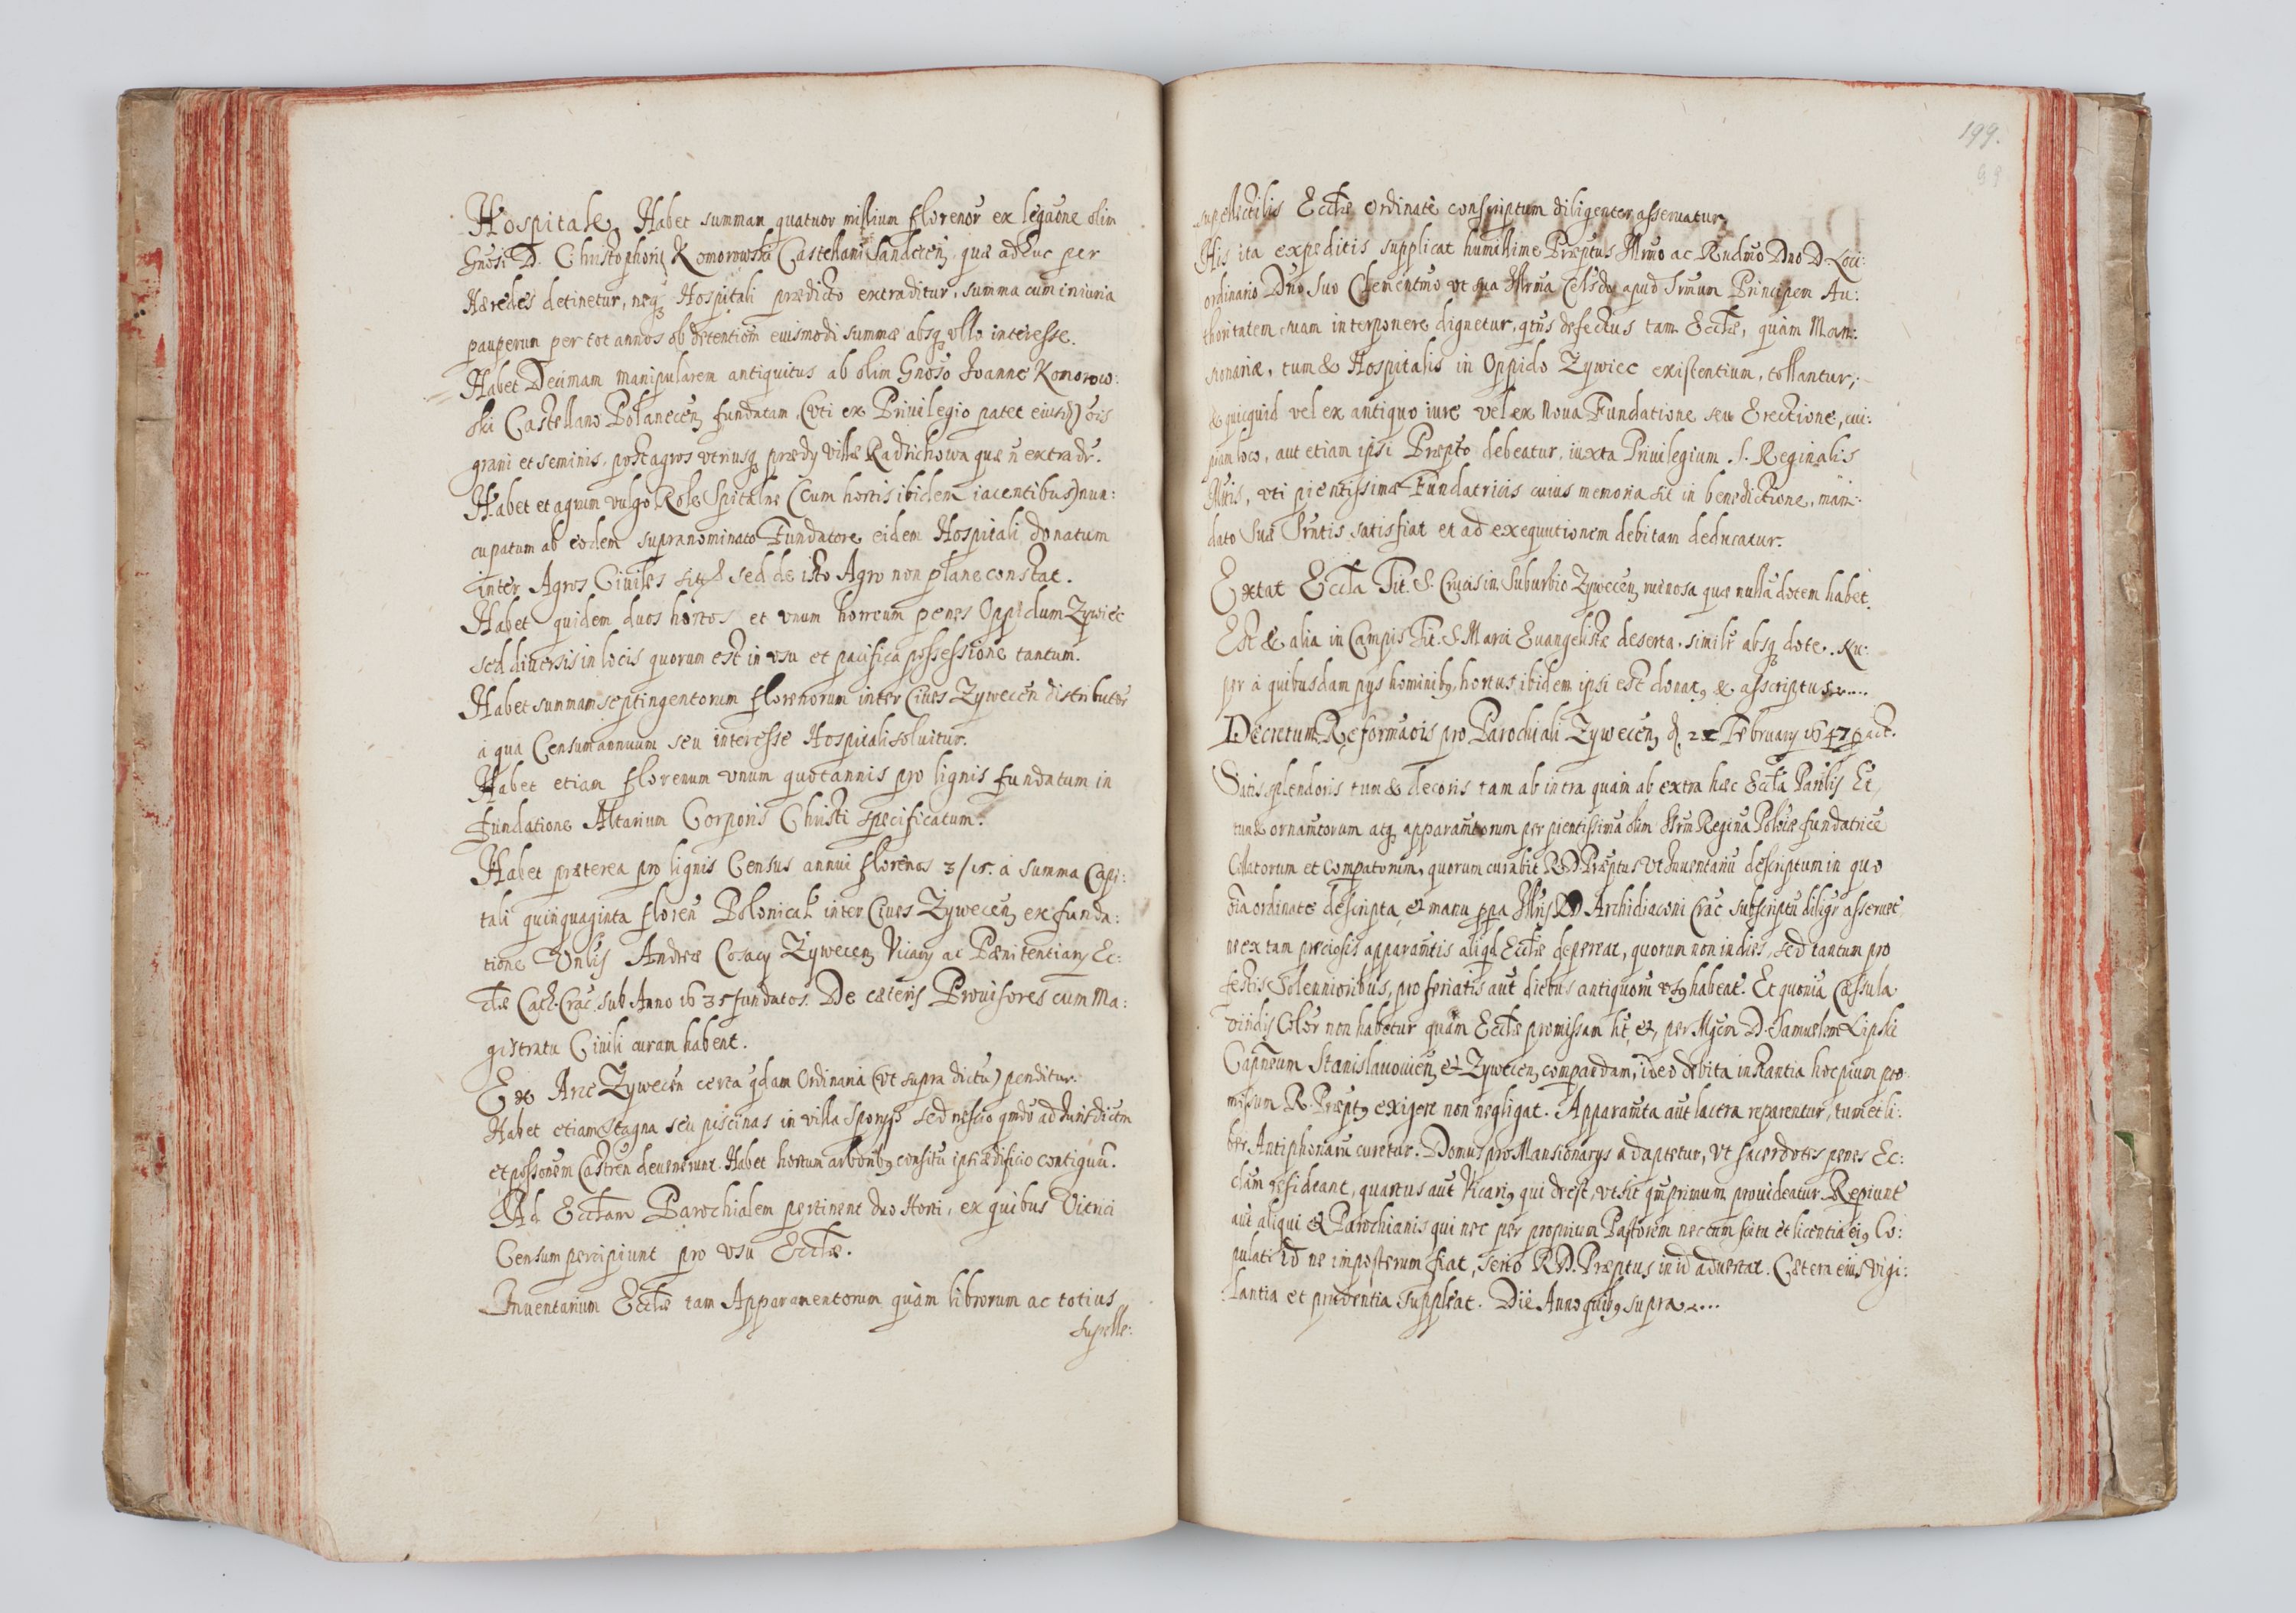 Hospitale, Habet summam quatuor millium florenor ex legaone olim
Gnosi D. Christophori Komorowski Castellani Sandecen, quæ adhuc per
Hæredes detinetur, neq3 Hospitali prædicto extraditur, summa cum iniuria
pauperum per tot annos ob detentiom eiusmodi summæ absq3 vllo interesse.
Habet Decimam manipularem antiquitus ab olim Gnoso Joanne Komorow:
ski Castellano Polanecen, fundatam (vti ex Priuilegio patet eius) ois
grani et seminis, post agros vtriusq3 prædy villæ Radzichowa quæ n extradr.
Habet et agrum vulgo Role Spitalne (cum hortis ibidem iacentibus) nun:
cupatum ab eodem supranominato Fundatore eidem Hospitali donatum
inter Agros Ciuiles sed de isto Agro non plane constat.
Habet quidem duos hortos et vnum horreum penes Oppidum Zywiec
sed diuersis in locis quorum est in vsu et pacifica possessione tantum.
Habet summam septingentorum florenorum inter Ciues Zywecen distributor
a qua Censum annuum seu interesse Hospitali soluitur.
Habet etiam florenum vnum quotannis pro lignis fundatum in
fundatione Altarium Corporis Christi specificatum.
Habet præterea pro lignis Census annui florenos 3/15. a summa Capi:
tali quinquaginta floren Polonical inter Ciues Zywecen, ex funda:
tione Vnlis Andreæ Cosacy Zywecen, Vicary ac Pænitentiary Ec:
clæ Cath. Crac. sub Anno 1635 fundatos. De cæteris Prouisores cum Ma:
gistratu Ciuili curam habent.
Ex Arce Zywecen certa qdam Ordinaria (vt supra dictu) penditur.
Habet etiam stagna seu piscinas in villa Sporysz sed nescio qmdo ad Jurisdicem
et possonem Castren deuenerunt. Habet hortum arboribq consitu ipsi ædificio contiguu.
Ad Ecclam Parochialem pertinent duo Horti, ex quibus Vitrici
Censum percipiunt pro vsu Ecclæ.
Inuentarium Ecclæ tam Apparamentorum quam librorum ac totius
supelle:
199.
supellectilis Ecclæ ordinate conscriptum diligenter asseruatur.
His ita expeditis supplicat humillime Præptus Illrmo ac Rndmo Dno D. Loci:
ordinario Dno Suo Clementmo vt sua Illrma Celsdo apud Srmum Principem Au:
thoritatem suam interponere dignetur, qtus defectus tam Ecclæ, quam Man:
sionariæ, tum & Hospitalis in Oppido Zywiec existentium, tollantur,
& quicquid vel ex antiquo iure vel ex noua Fundatione seu Erectione, cui:
piam loco, aut etiam ipsi Præpto debeatur, iuxta Priuilegium S. Reginalis
Mttis, vti pientissimæ Fundatricis cuius memoria sit in benedictione, man:
dato Suæ Srntis satisfiat et ad exequutionem debitam deducatur.
Extat Eccla Tit. S. Crucis in Suburbio Zywecen, ruinosa quæ nulla dotem habet.
Est & alia in Campis Tit. S. Marci Euangelistæ deserta, similr absq3 dote. Nu:
per a quibusdam pys hominibq hortus ibidem ipsi est donatq & asscriptus ....
Decretum Reformaois pro Parochiali Zywecen, d. 22 February 1647 act.
Satis splendoris tum & decoris tam ab intra quam ab extra hæc Eccla Parlis ht,
tum & ornamtorum atq3 apparamtorum per pientissima olim Srm Regina Poloniæ fundatrice
Collatorum et comparatorum, quorum curabit RD Præptus vt Inuentariu descriptum in quo
oia ordinate descripta, et manu ppa Illris D Archidiaconi Crac. subscriptu diligr asseruet
ne ex tam preciosis apparamtis aliqd Ecclæ depereat, quorum non indies, sed tantum pro
festis Solennioribus, pro feriatis aut diebus antiquoru vsq habeat. Et quonia Cassula
viridis Color non habetur quam Ecclæ promissam ht, et, per Mgcm D. Samuelem Lipski
Capneum Stanislauouien, & Zywecen, comparandam, ideo debita instantia hoc pium pro
missum R. Præptq exigere non negligat. Apparamta aut lacera reparentur, tum et li:
ber Antiphonaru curetur. Domus pro Mansionarys adaptetur, vt sacerdotes penes Ec:
clam resideant, quartus aut Vicariq qui deest, vt sit qmprimum prouideatur. Repiunt
aut aliqui ex Parochianis qui nec per proprium Pastorem nec cum scitu et licentia eiq Co:
pulati Id ne imposterum fiat, serio RD. Præptus in id aduertat. Cætera eius vigi:
lantia et prudentia suppleat. Die Anno quibq supra ....